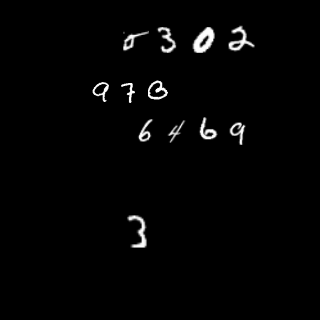 5 3 0 2
9 7
6 4 6 9
3